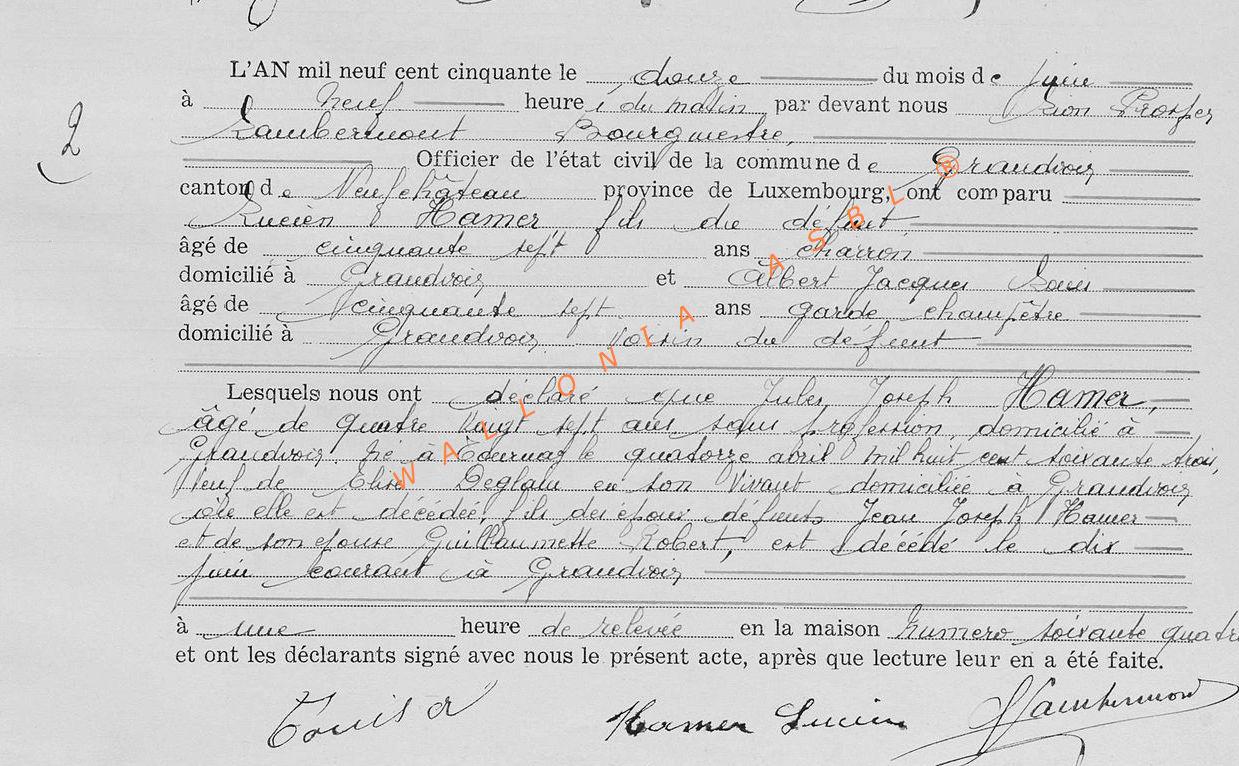 2
L'AN mil neuf cent cinquante le douze du mois de juin
à neuf heures du matin par devant nous Léon Prosper
Lambermont Bourgmestre,
Officier de l'état civil de la commune de Grandvoir
canton de Neufchâteau province de Luxembourg, ont comparu
Lucien Hamer fils du défunt
âgé de cinquante sept ans charron
domicilié à Grandvoir et Albert Jacques
âgé de cinquante sept ans garde champêtre
domicilié à Grandvoir voisin du défunt
Lesquels nous ont déclaré que Jules Joseph Hamer,
âgé de quatre vingt sept ans sans profession, domicilié à
Grandvoir né à le quatorze avril mil huit cent soixante trois,
Veuf de Elise Deglain en son vivant domiciliée à Grandvoir
où elle est décédée, fils des époux défunts Jean Joseph Hamer
et de son épouse Guillaumette Robert, est décédé le dix
juin courant à Grandvoir
à une heure de relevée en la maison numero soixante quatre
et ont les déclarants signé avec nous le présent acte, après que lecture leur en a été faite.
Hamer Lucien Lambermont
WALLONIA ASBL ®